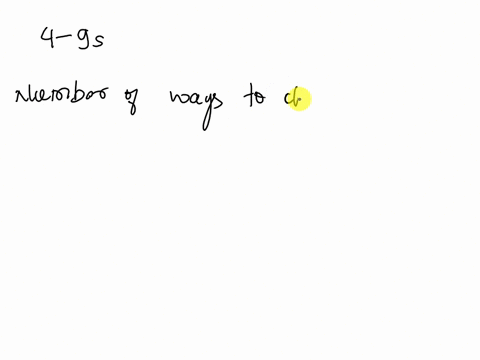 4-9s
Number of ways to d